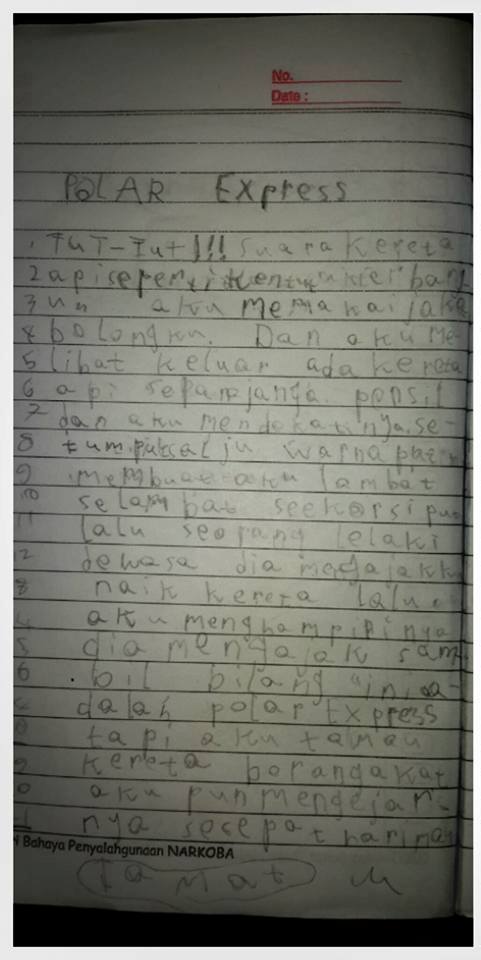 No.
Date :
POLAR Express
1. TuT-Tut!!! suara kereta
2 api seperti kentut
3 aku memakai jake
4 bolongku. Dan aku me-
5 lihat keluar ada kereta
6 api sepanjanga. pensil
7 dan aku mendekatinya. se-
8 tumpuksalju warna
9 membuat aku lambat
10 selambat seekorsiput
11 lalu seorang lelaki
12 dewasa dia mengajakku
naik kereta lalu.
aku menghampirinya
5 dia mengajak sam-
6 .bil bilang "inia-
dalah polar Express
tapi aku tamau
kereta borangakat
0 aku pun mengejar-
nya secepat harimau
i Bahaya Penyalahgunaan NARKOBA
Tamat